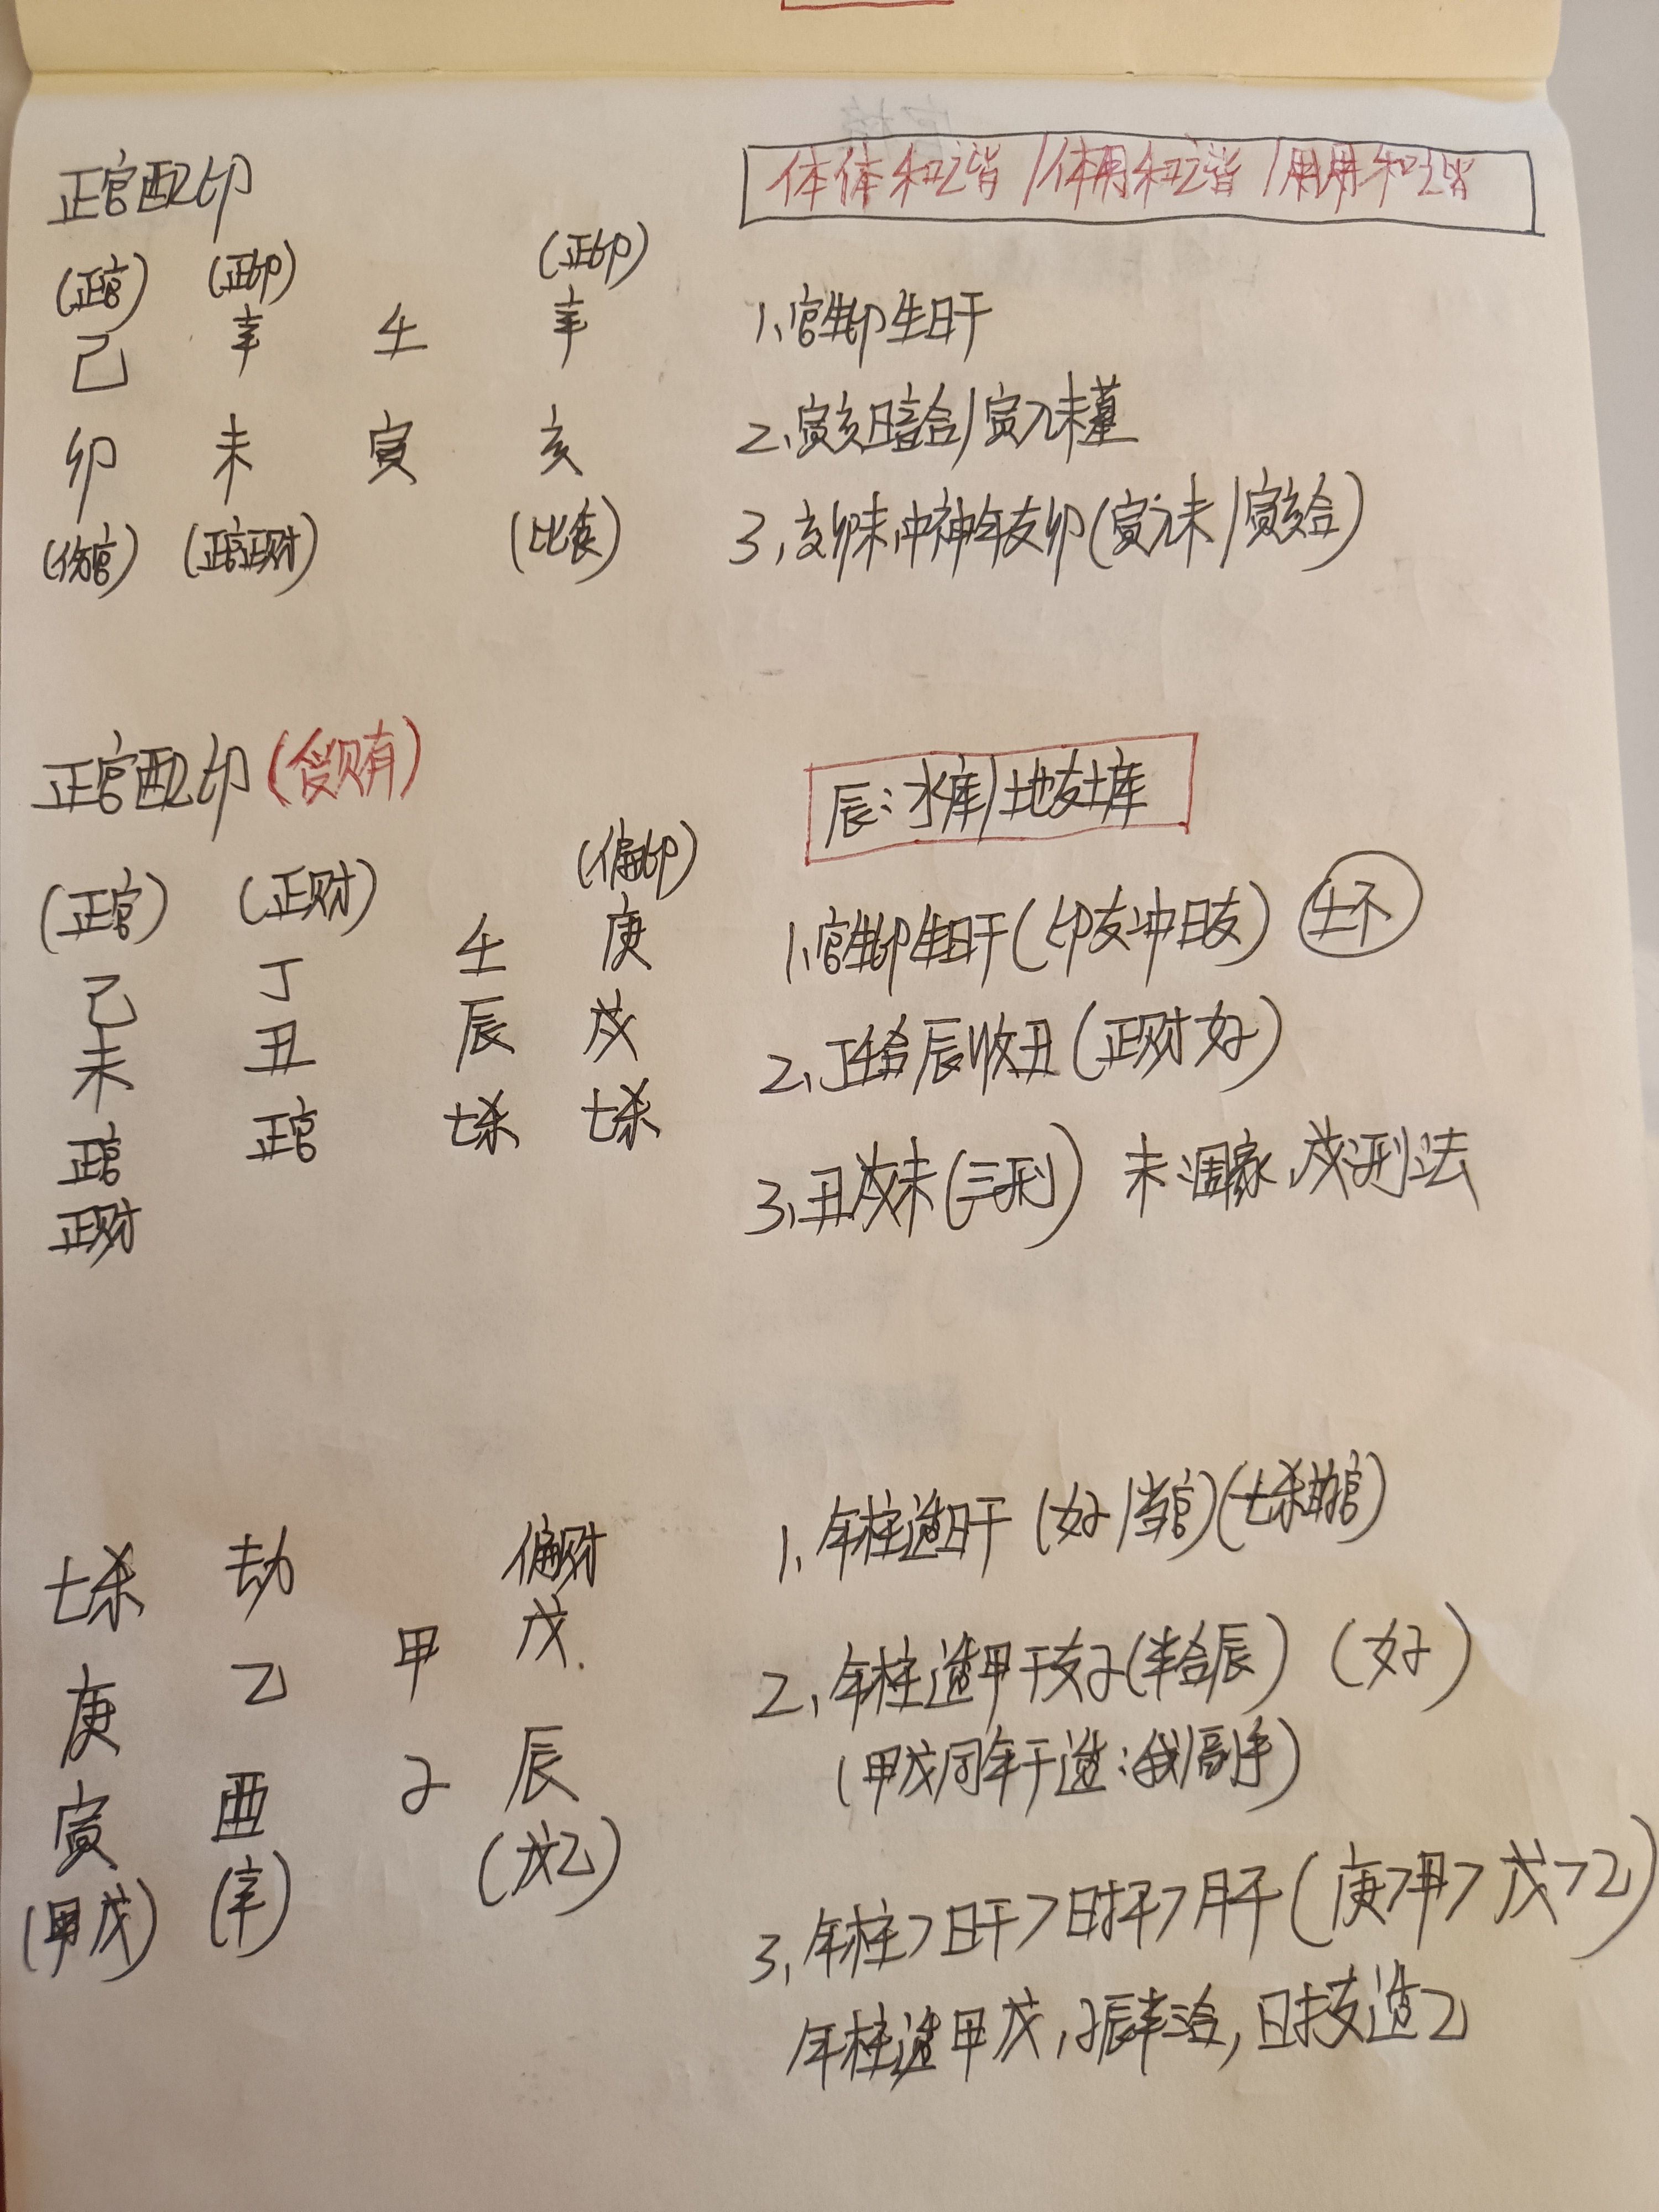 正官配印
体体和谐/体用和谐/用用和谐
(正官) (正印) (正印)
己 辛 壬 辛
卯 未 寅 亥
(伤官) (正官正财) (比食)
1、官生印生日干
2、寅亥暗合/寅入未墓
3、亥卯未,冲神年支卯(寅入未/寅亥合)
正官配印(贪财)
辰:水库/土地支土库
(正官) (正财) (偏印)
己 丁 壬 庚
未 丑 辰 戌
正官 正官 七杀 七杀
正财
1、官生印生日干(印支冲日支)
2、丁壬合辰收丑(正财好)
3、丑戌未(三刑) 未:国家,戌:刑法
七杀 劫 偏财
庚 乙 甲 戊
寅 酉 子 辰
(甲戊) (辛) (戊乙)
1、年柱造日干(好/当官)(七杀的官)
2、年柱造甲干支子(半合辰) (好)
(甲戊同年干造:我/副手)
3、年柱>日干>时干>月干(庚>甲>戊>乙)
年柱造甲戊,子辰半合,时支造乙